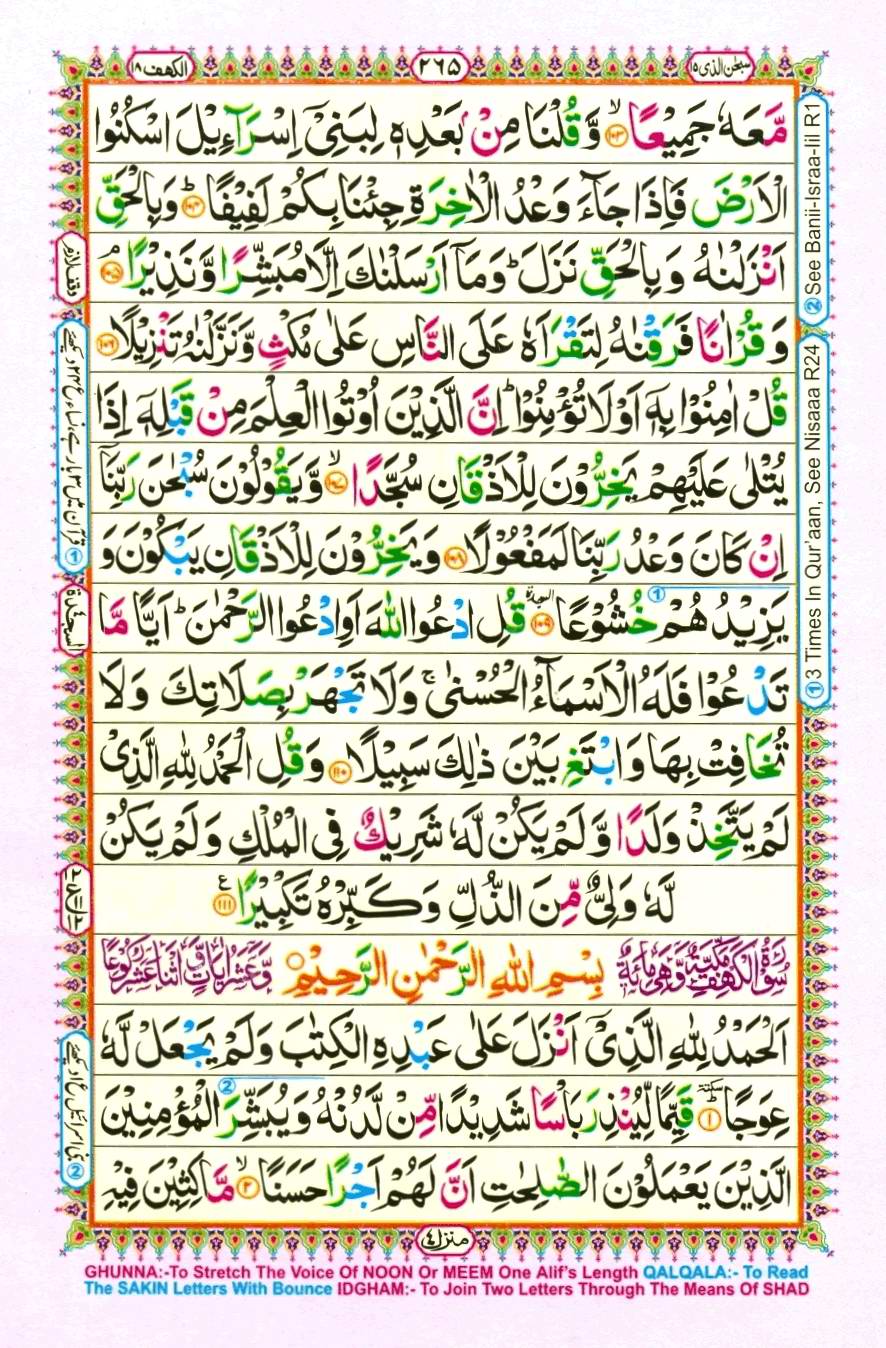 سبحٰن الذی ۱۵
۲۶۵
الکهف ۱۸
مَّعَهٗ جَمِيْعًا ۙ﴿۱۰۳﴾ وَّ قُلْنَا مِنْۢ بَعْدِهٖ لِبَنِيْۤ اِسْرَآءِيْلَ اسْكُنُوا
الْاَرْضَ فَاِذَا جَآءَ وَعْدُ الْاٰخِرَةِ جِئْنَا بِكُمْ لَفِيْفًا ؕ﴿۱۰۴﴾ وَ بِالْحَقِّ
اَنْزَلْنٰهُ وَ بِالْحَقِّ نَزَلَ ؕ وَ مَاۤ اَرْسَلْنٰكَ اِلَّا مُبَشِّرًا وَّ نَذِيْرًا ۘ﴿۱۰۵﴾
وَ قُرْاٰنًا فَرَقْنٰهُ لِتَقْرَاَهٗ عَلَى النَّاسِ عَلٰى مُكْثٍ وَّ نَزَّلْنٰهُ تَنْزِيْلًا ﴿۱۰۶﴾
قُلْ اٰمِنُوْا بِهٖۤ اَوْ لَا تُؤْمِنُوْا ؕ اِنَّ الَّذِيْنَ اُوْتُوا الْعِلْمَ مِنْ قَبْلِهٖۤ اِذَا
يُتْلٰى عَلَيْهِمْ يَخِرُّوْنَ لِلْاَذْقَانِ سُجَّدًا ۙ﴿۱۰۷﴾ وَّ يَقُوْلُوْنَ سُبْحٰنَ رَبِّنَاۤ
اِنْ كَانَ وَعْدُ رَبِّنَا لَمَفْعُوْلًا ﴿۱۰۸﴾ وَ يَخِرُّوْنَ لِلْاَذْقَانِ يَبْكُوْنَ وَ
يَزِيْدُهُمْ خُشُوْعًا ﴿۱۰۹﴾ السجدة ① قُلِ ادْعُوا اللّٰهَ اَوِ ادْعُوا الرَّحْمٰنَ ؕ اَيًّا مَّا
تَدْعُوْا فَلَهُ الْاَسْمَآءُ الْحُسْنٰى ۚ وَ لَا تَجْهَرْ بِصَلَاتِكَ وَ لَا
تُخَافِتْ بِهَا وَ ابْتَغِ بَيْنَ ذٰلِكَ سَبِيْلًا ﴿۱۱۰﴾ وَ قُلِ الْحَمْدُ لِلّٰهِ الَّذِيْ
لَمْ يَتَّخِذْ وَلَدًا وَّ لَمْ يَكُنْ لَّهٗ شَرِيْكٌ فِي الْمُلْكِ وَ لَمْ يَكُنْ
لَّهٗ وَلِيٌّ مِّنَ الذُّلِّ وَ كَبِّرْهُ تَكْبِيْرًا ﴿۱۱۱﴾ ع
سُوْرَةُ الْكَهْفِ مَكِّيَّةٌ وَّهِيَ مِائَةٌ بِسْمِ اللّٰهِ الرَّحْمٰنِ الرَّحِيْمِ وَّعَشْرُ اٰيَاتٍ وَّاثْنَا عَشَرَ رُكُوْعًا
اَلْحَمْدُ لِلّٰهِ الَّذِيْۤ اَنْزَلَ عَلٰى عَبْدِهِ الْكِتٰبَ وَ لَمْ يَجْعَلْ لَّهٗ
عِوَجًا ﴿۱﴾ سكتة قَيِّمًا لِّيُنْذِرَ بَاْسًا شَدِيْدًا مِّنْ لَّدُنْهُ وَ يُبَشِّرَ ② الْمُؤْمِنِيْنَ
الَّذِيْنَ يَعْمَلُوْنَ الصّٰلِحٰتِ اَنَّ لَهُمْ اَجْرًا حَسَنًا ۙ﴿۲﴾ مَّاكِثِيْنَ فِيْهِ
منزل ۴
② See Banii-Israa-Iil R1
① 3 Times In Qur'aan, See Nisaaa R24
وقف لازم
السجدة ۴
GHUNNA:-To Stretch The Voice Of NOON Or MEEM One Alif's Length QALQALA:- To Read
The SAKIN Letters With Bounce IDGHAM:- To Join Two Letters Through The Means Of SHAD